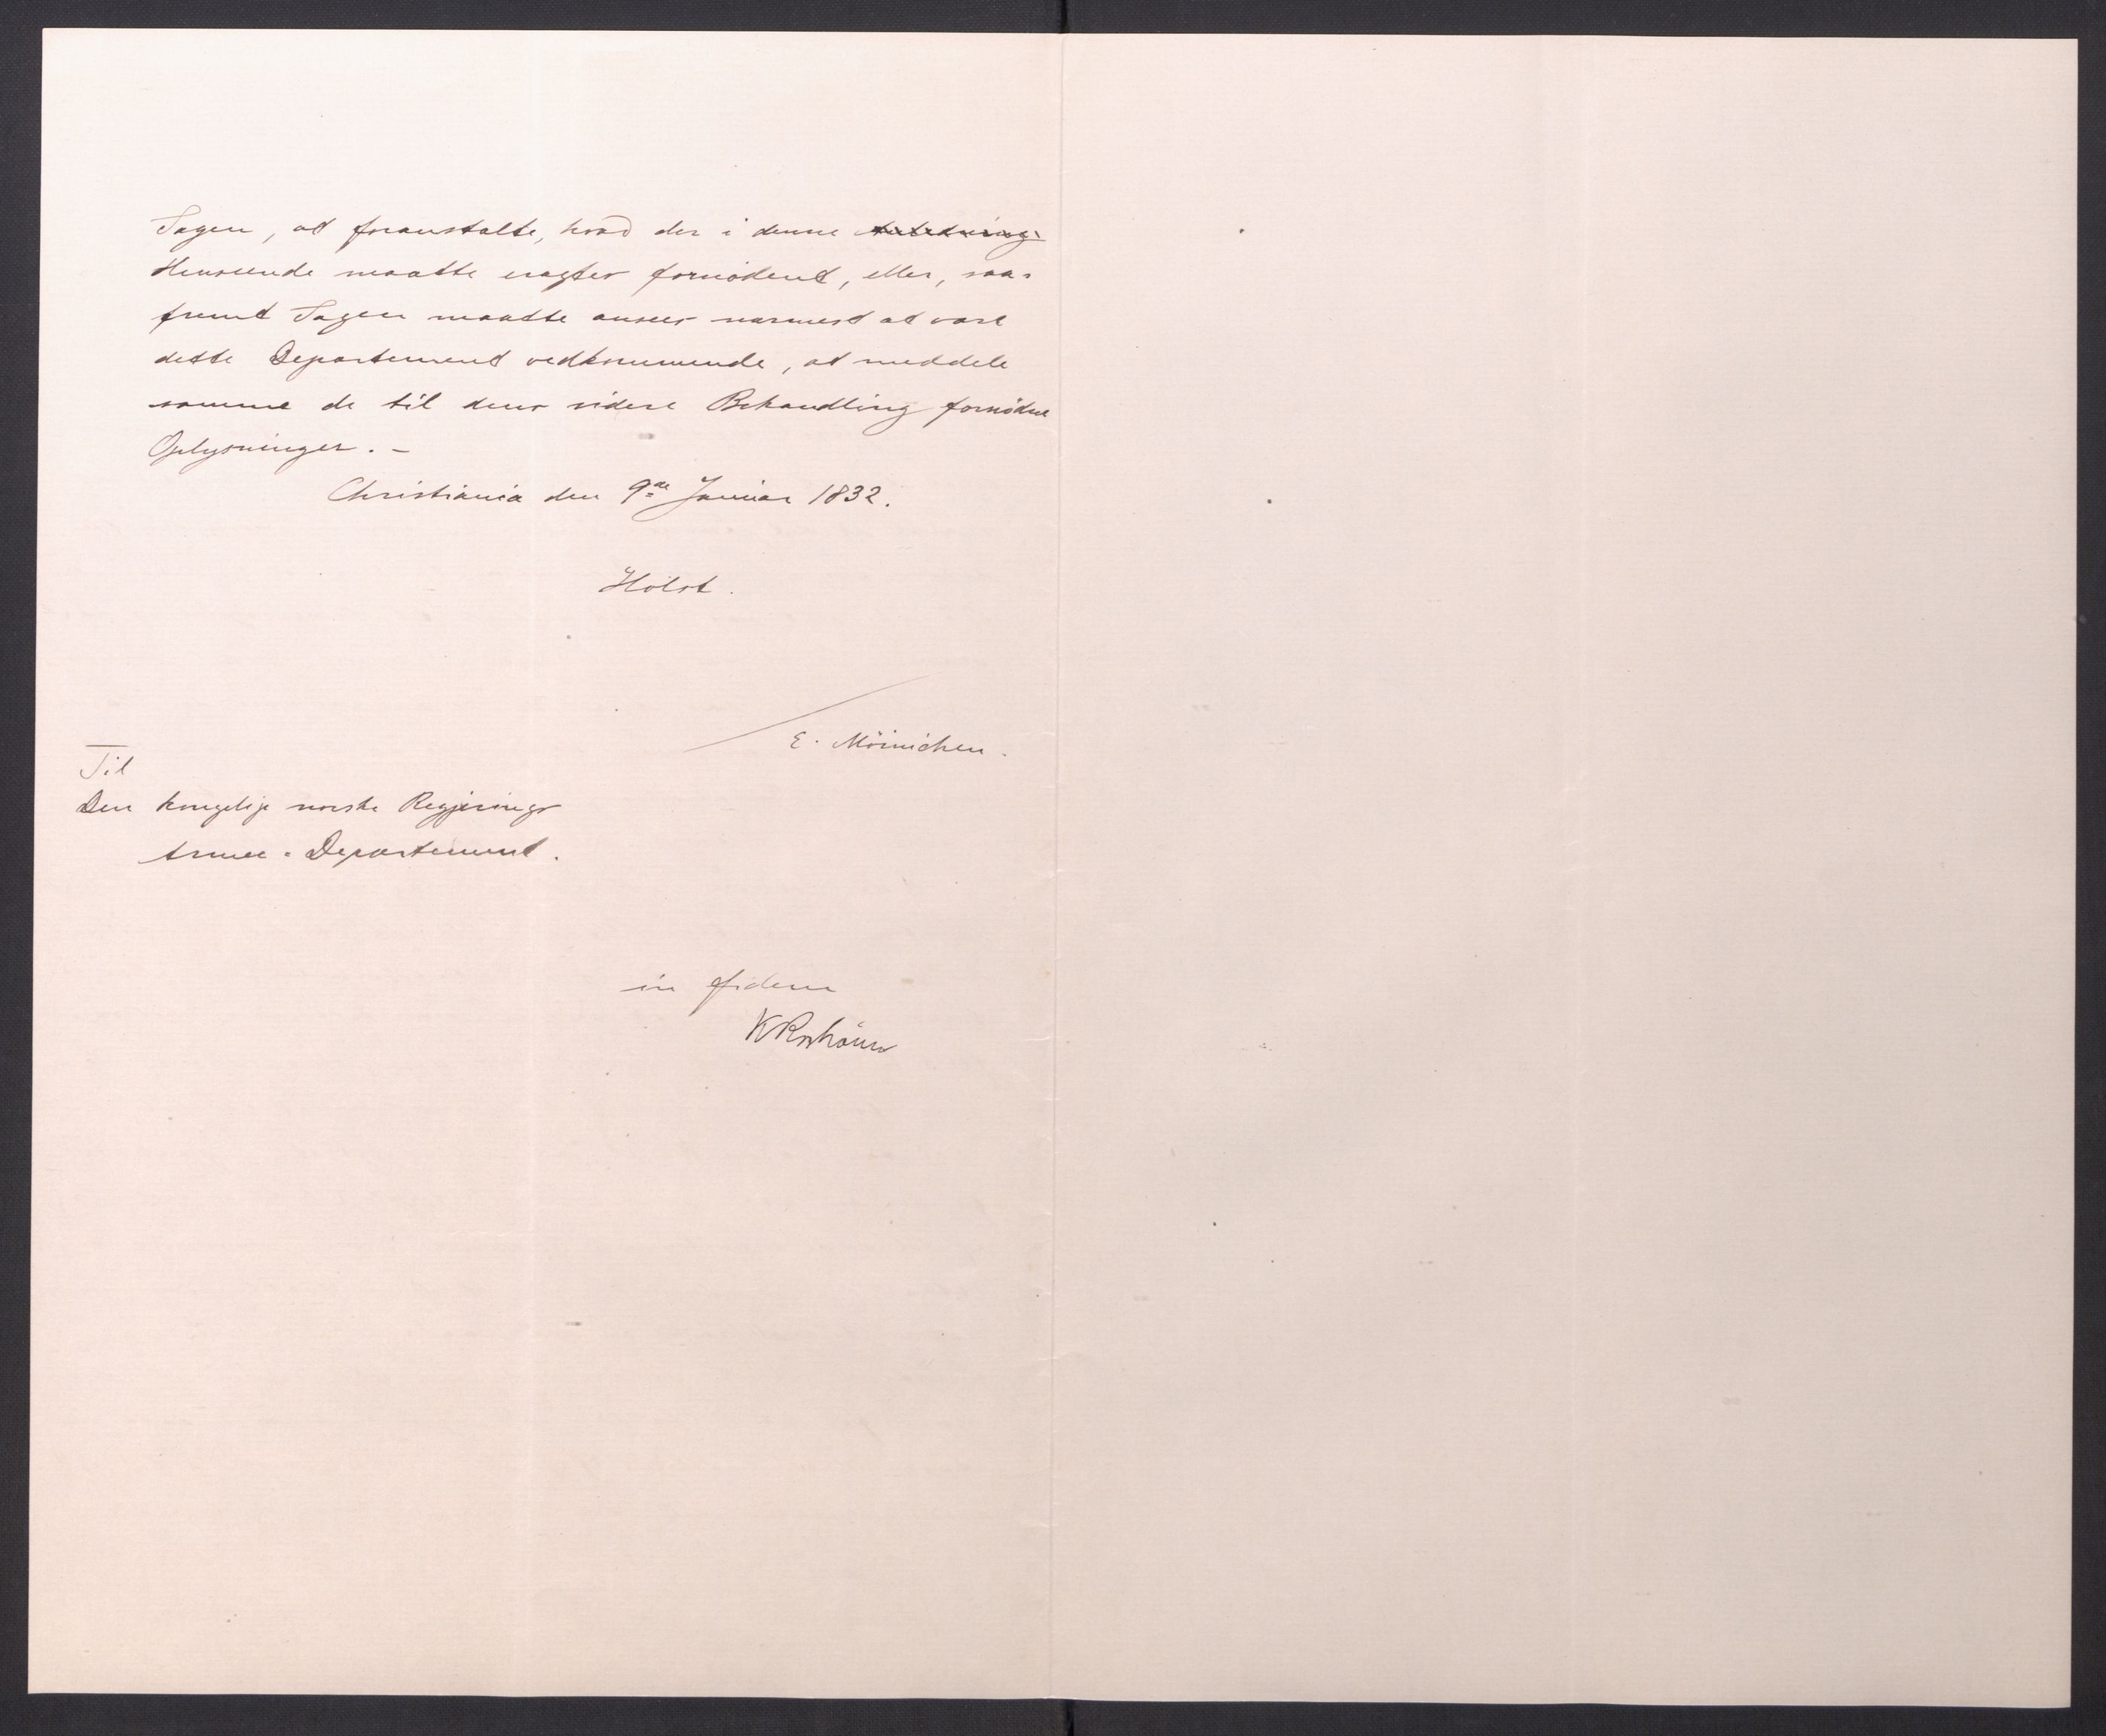 Sagen, at foranstalte, hvad der i denne Anledning
Henseende maatte eragtes fornødent, eller, saa-
fremt Sagen maatte ansees nærmest at være
dette Departement vedkommende, at meddele
samme de til dens videre Behandling fornødne
Oplysninger. -
Christiania den 9de Januar 1832.
Holst.
E. Möinichen.
Til
Den kongelige norske Regjerings
Armee-Departement.
in fidem